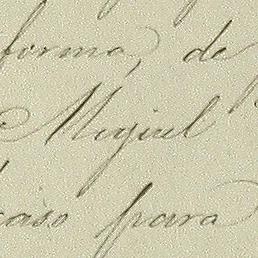 forma, de
Miguel
caso para